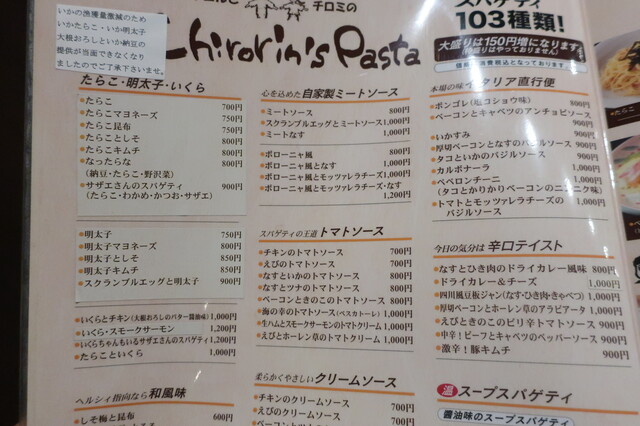 いかの漁獲量激減のため
いかたらこ・いか明太子
大根おろしといか納豆の
提供が当面できなくなり
ましたのでご了承下さいませ。
チロミの
Chirorin's Pasta
スパゲティ
103種類!
大盛りは150円増になります
たらこ・明太子・いくら
たらこ 700円
たらこマヨネーズ 750円
たらこ昆布 750円
たらことしそ 800円
たらこキムチ 800円
なったらな 800円
(納豆・たらこ・野沢菜)
サザエさんのスパゲティ 900円
(たらこ・わかめ・かつお・サザエ)
明太子 750円
明太子マヨネーズ 800円
明太子としそ 850円
明太子キムチ 850円
スクランブルエッグと明太子 900円
いくらとチキン(大根おろしのバター醤油味) 1,000円
いくら・スモークサーモン 1,200円
いくらちゃんもいるサザエさんのスパゲティ 1,200円
たらこといくら 1,000円
ヘルシィ指向なら 和風味
しそ梅と昆布 600円
心を込めた 自家製ミートソース
ミートソース 800円
スクランブルエッグとミートソース 1,000円
ミートなす 1,000円
ボローニャ風 800円
ボローニャ風となす 1,000円
ボローニャ風とモッツァレラチーズ 1,000円
ボローニャ風とモッツァレラチーズ・なす
1,200円
スパゲティの王道 トマトソース
チキンのトマトソース 700円
えびのトマトソース 700円
なすといかのトマトソース 800円
なすとツナのトマトソース 800円
ベーコンときのこのトマトソース 800円
海の幸のトマトソース(ペスカトーレ) 1,000円
生ハムとスモークサーモンのトマトクリーム 1,000円
えびとホーレン草のトマトクリーム 1,000円
柔らかくやさしい クリームソース
チキンのクリームソース 700円
えびのクリームソース
本場の味 イタリア直行便
ボンゴレ(塩コショウ味) 800円
ベーコンとキャベツのアンチョビソース
900円
いかすみ 900円
厚切ベーコンとなすのバジルソース 900円
タコといかのバジルソース 900円
カルボナーラ 1,000円
ペペロンチーニ 1,000円
(タコとかりかりベーコンのニンニク味)
トマトとモッツァレラチーズの
バジルソース 1,000円
今日の気分は 辛口テイスト
なすとひき肉のドライカレー風味 800円
ドライカレー&チーズ 1,000円
四川風豆板ジャン(なす・ひき肉・きゃべつ) 1,000円
厚切ベーコンとホーレン草のアラビアータ 1,000円
えびときのこのピリ辛トマトソース 900円
中辛!ビーフとキャベツのペッパーソース 900円
激辛!豚キムチ 900円
温 スープスパゲティ
醤油味のスープスパゲティ